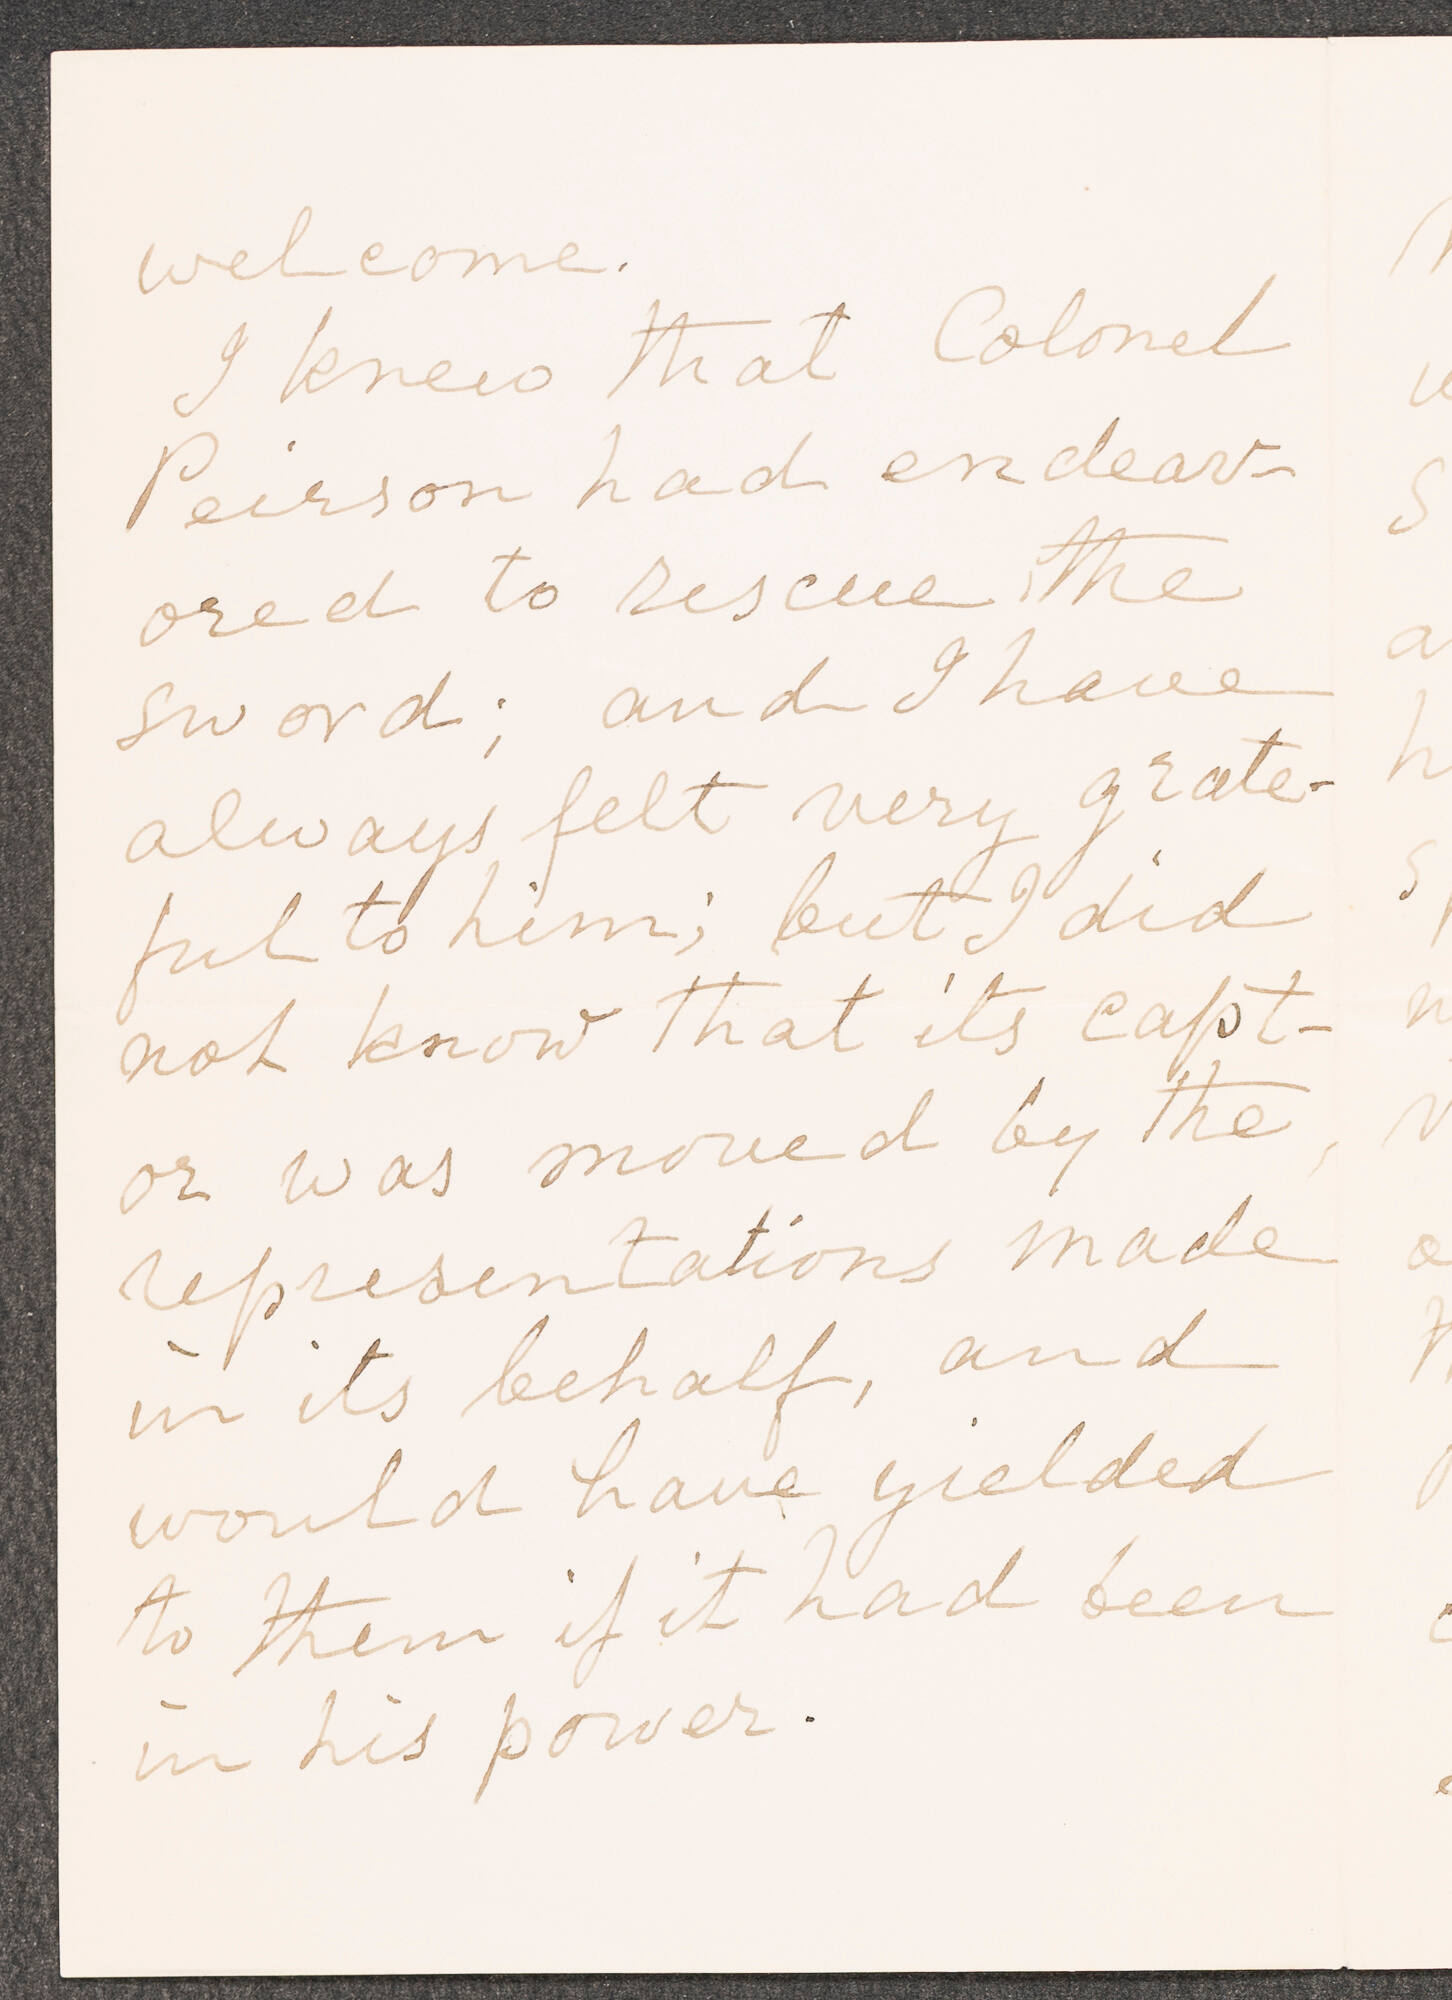 welcome.
I knew that Colonel
Peirson had endeav-
ored to rescue the
sword; and I have
always felt very grate-
ful to him; but I did
not know that its capt-
or was moved by the
representations made
in its behalf, and
would have yielded
to them if it had been
in his power.